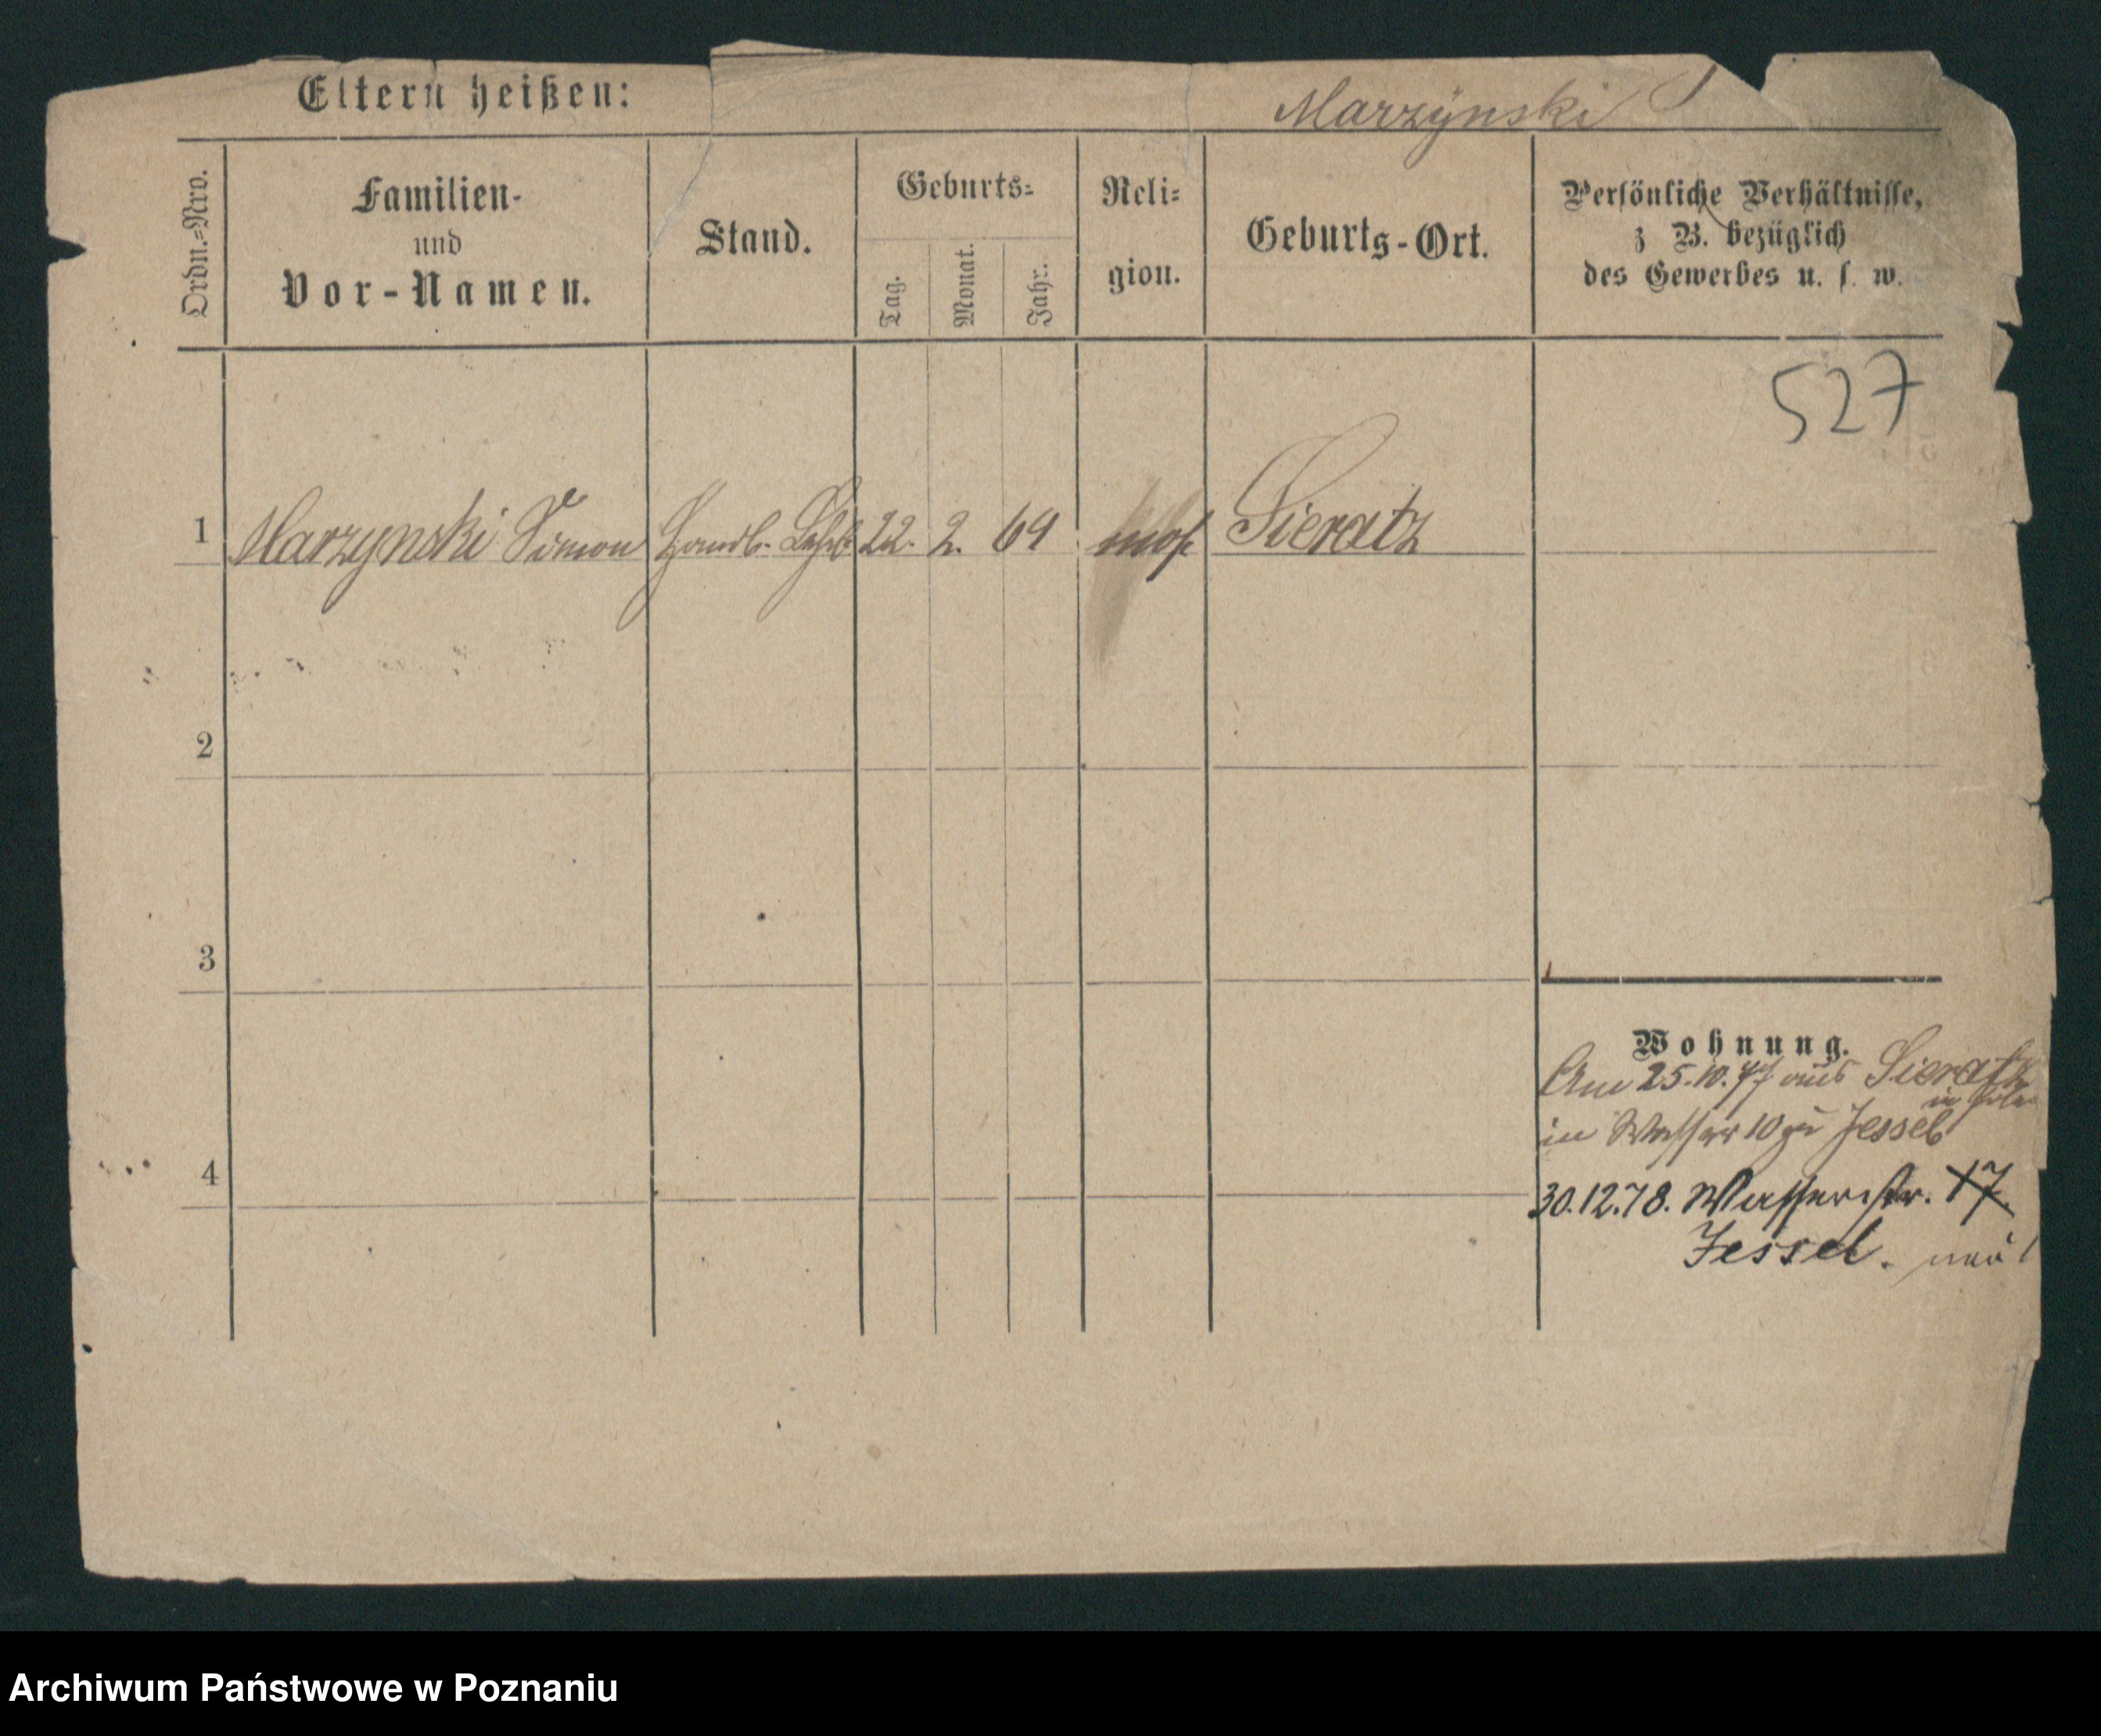 Eltern heißen:
Marzÿnski S
Ordn.=Nro.
Familien-
und
Vor-Namen.
Stand.
Geburts=
Tag.
Monat.
Jahr.
Reli=
gion.
Geburts-Ort.
Persönliche Verhältnisse,
z B. bezüglich
des Gewerbes u. s. w.
527
1 Marzynski Simon Handl. Lehrl. 22. 2. 69 mos. Sieratz
2
3
4
Wohnung.
Am 25.10.77 aus Sieratz
in Polen
in Wasser 10 zu Jessel
30.12.78. Wasserstr. 17
Jessel.
Archiwum Państwowe w Poznaniu